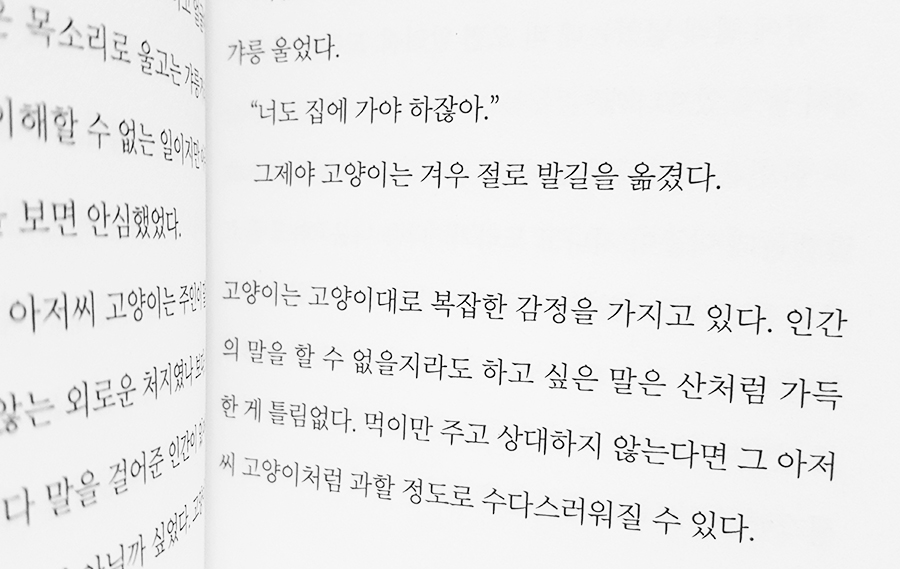 목소리로 울고는
이해할 수 없는 일이지만
보면 안심했었다.
아저씨 고양이는 주인이
않는 외로운 처지였나
다 말을 걸어준 인간이
아닐까 싶었다.
갸릉 울었다.
“너도 집에 가야 하잖아.”
그제야 고양이는 겨우 절로 발길을 옮겼다.
고양이는 고양이대로 복잡한 감정을 가지고 있다. 인간
의 말을 할 수 없을지라도 하고 싶은 말은 산처럼 가득
한 게 틀림없다. 먹이만 주고 상대하지 않는다면 그 아저
씨 고양이처럼 과할 정도로 수다스러워질 수 있다.